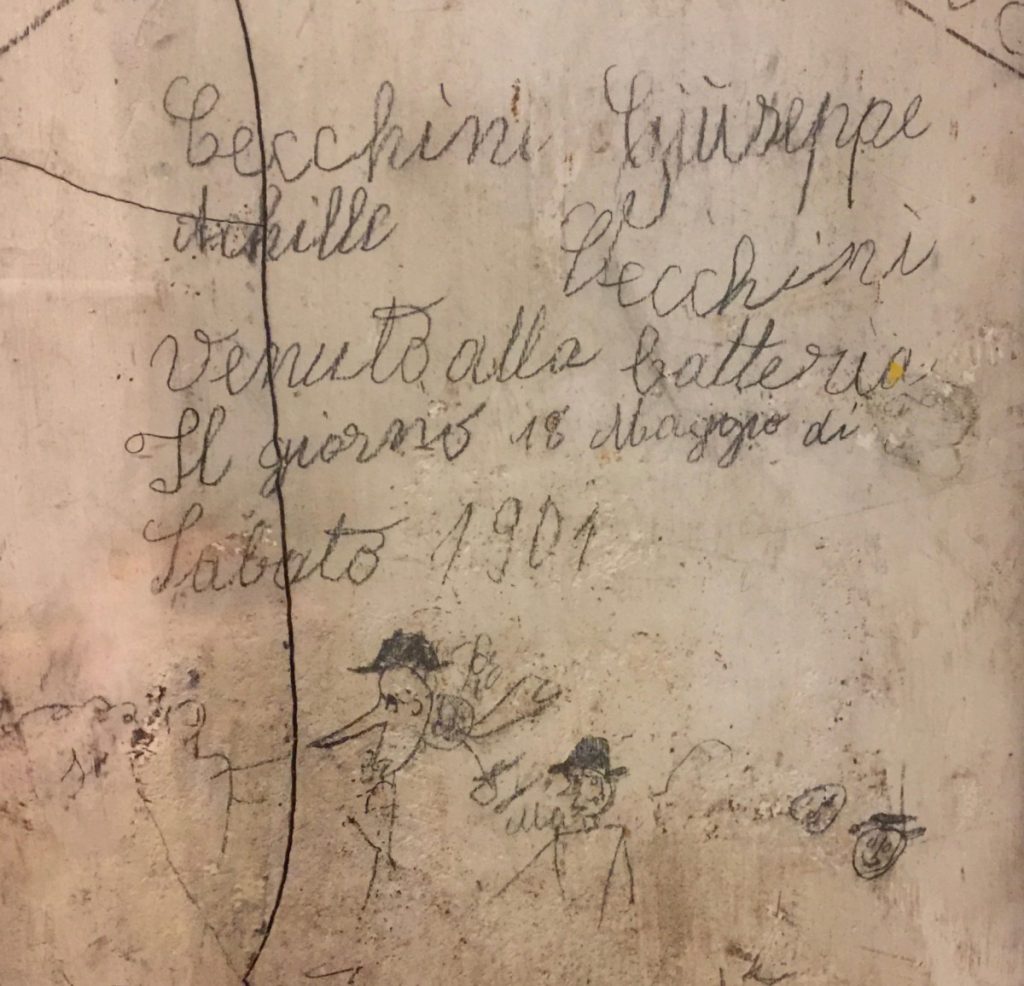 Cecchini Giùseppe
Achille Cecchini
Venuto alla batteria
Il giorno 18 Maggio di
Sabato 1901